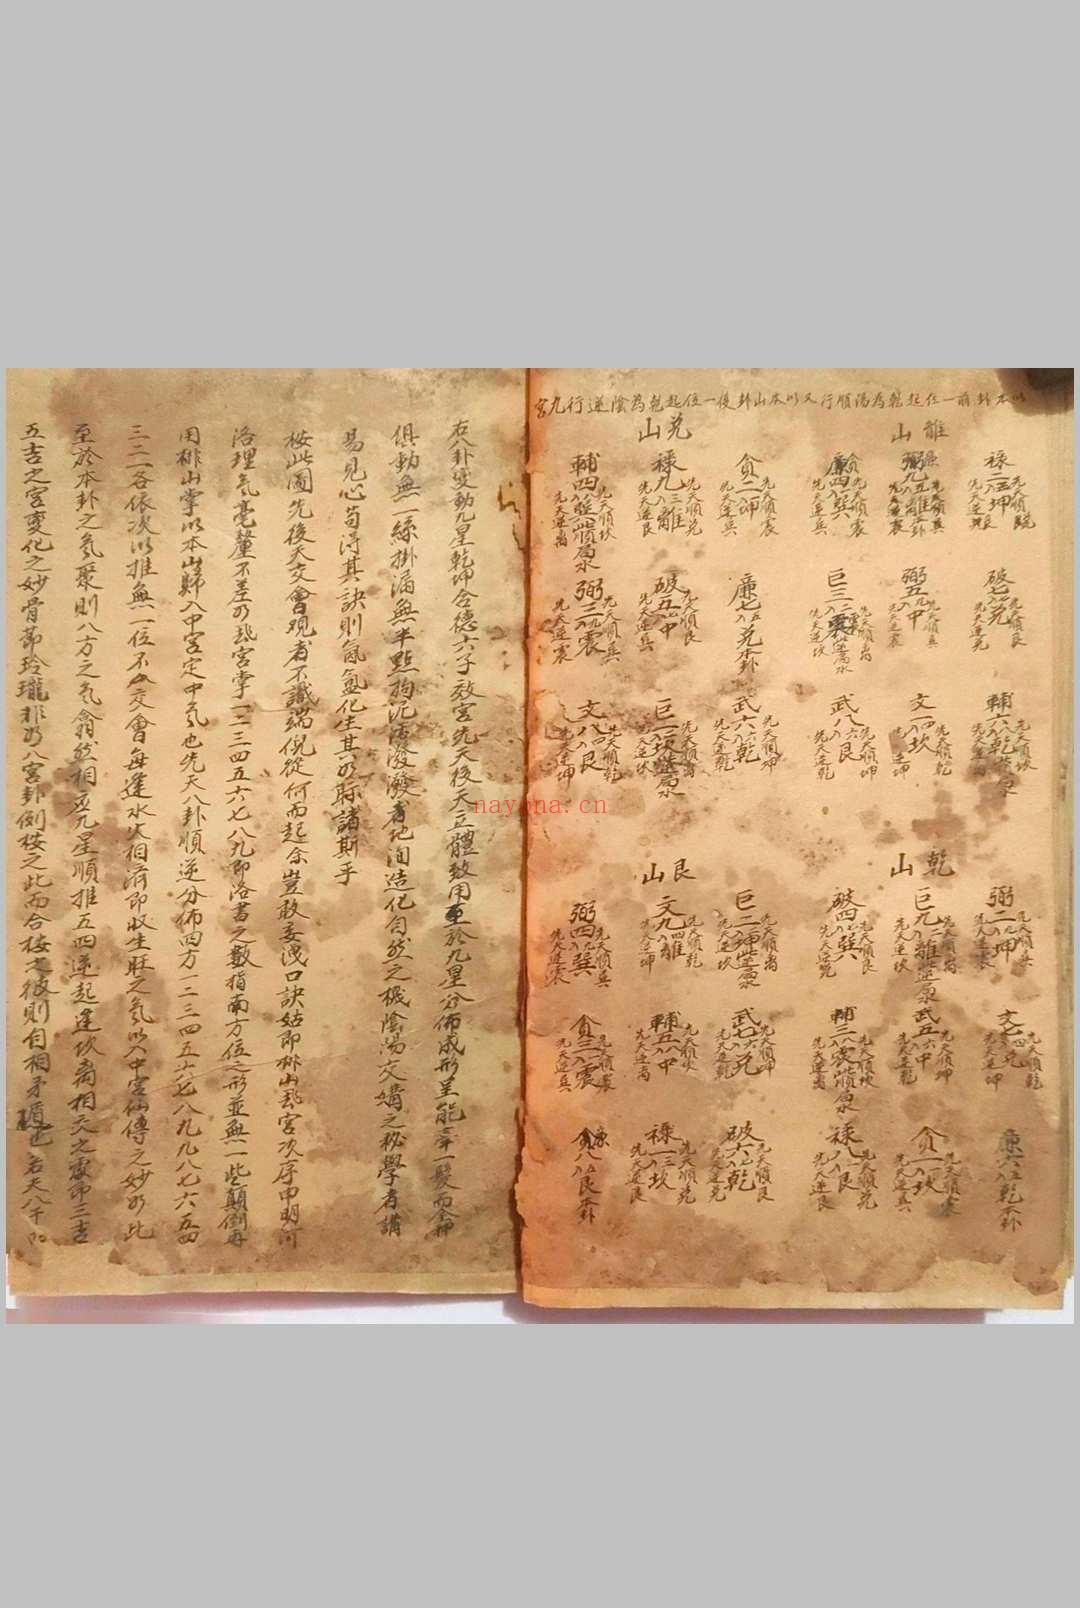 以本卦前一位起乾為陽順行又以本山卦後一位起乾為陰逆行九宮
離山
祿二入坤
先天逆艮
弼九入離
貪
廉四入巽
先天順震
先天逆兵
破七入兌
先天順艮
先天逆兌
弼五入中
先天順兵
先天逆震
巨三入震
先天順离
先天逆坎
輔六入乾
先天順坎
先天逆离
文一入坎
先天順乾
先天逆坤
武八入艮
先天順坤
先天逆乾
兌山
貪二入坤
先天順震
先天逆兵
祿九入離
先天順兌
先天逆艮
輔四入巽
先天順坎
先天逆离
廉七入兌本卦
破五入中
先天順艮
先天逆兵
弼三入震
先天順兵
先天逆震
武六入乾
先天順坤
先天逆乾
巨一入坎
先天順离
先天逆坎
文八入艮
先天順乾
先天逆坤
乾山
弼二入坤
先天順兵
先天逆震
巨九入離
先天順离
先天逆坎
破四入巽
先天順艮
先天逆兌
文七入兌
先天順乾
先天逆坤
武五入中
先天順坤
先天逆乾
輔三入震
先天順坎
先天逆离
廉六入乾本卦
貪一入坎
先天順震
先天逆兵
祿八入艮
先天順兌
先天逆艮
艮山
巨二入坤
先天順离
先天逆坎
文九入離
先天順乾
先天逆坤
弼四入巽
先天順兵
先天逆震
武七入兌
先天順坤
先天逆乾
輔五入中
先天順坎
先天逆离
貪三入震
先天順震
先天逆兵
破六入乾
先天順艮
先天逆兌
祿一入坎
先天順兌
先天逆艮
廉八入艮本卦
右八卦变動九星乾坤合德六子效宮先天後天立體致用至於九星分佈成形呈能牽一髮而全神
俱動無一絲掛漏無半點拘泥活潑潑者地洵造化自然之機陰陽交媾之秘學者講
易見心苟得其訣則氤氳化生其如眎諸斯乎
按此圖先後天交會观者不識端倪從何而起余豈敢妄洩口訣姑即排山飛宮次序申明河
洛理气毫釐不差如飛宮掌一二三四五六七八九即洛書之數指南方位之形並無一些顛倒再
用排山掌以本山歸入中宮定中气也先天八卦順逆分佈四方一二三四五六七八九九八七六五四
三二一各依次以推無一位不交會每逢水火相濟即收生旺之氣以入中宮仙傳之妙如此
至於本卦之氣聚則八方之气翕然相應九星順推五四逆起逢坎离相交之處即三吉
五吉之宮變化之妙骨節玲瓏推如八宮卦例按之此而合按之彼則自相矛盾也若天八千
nayona.cn